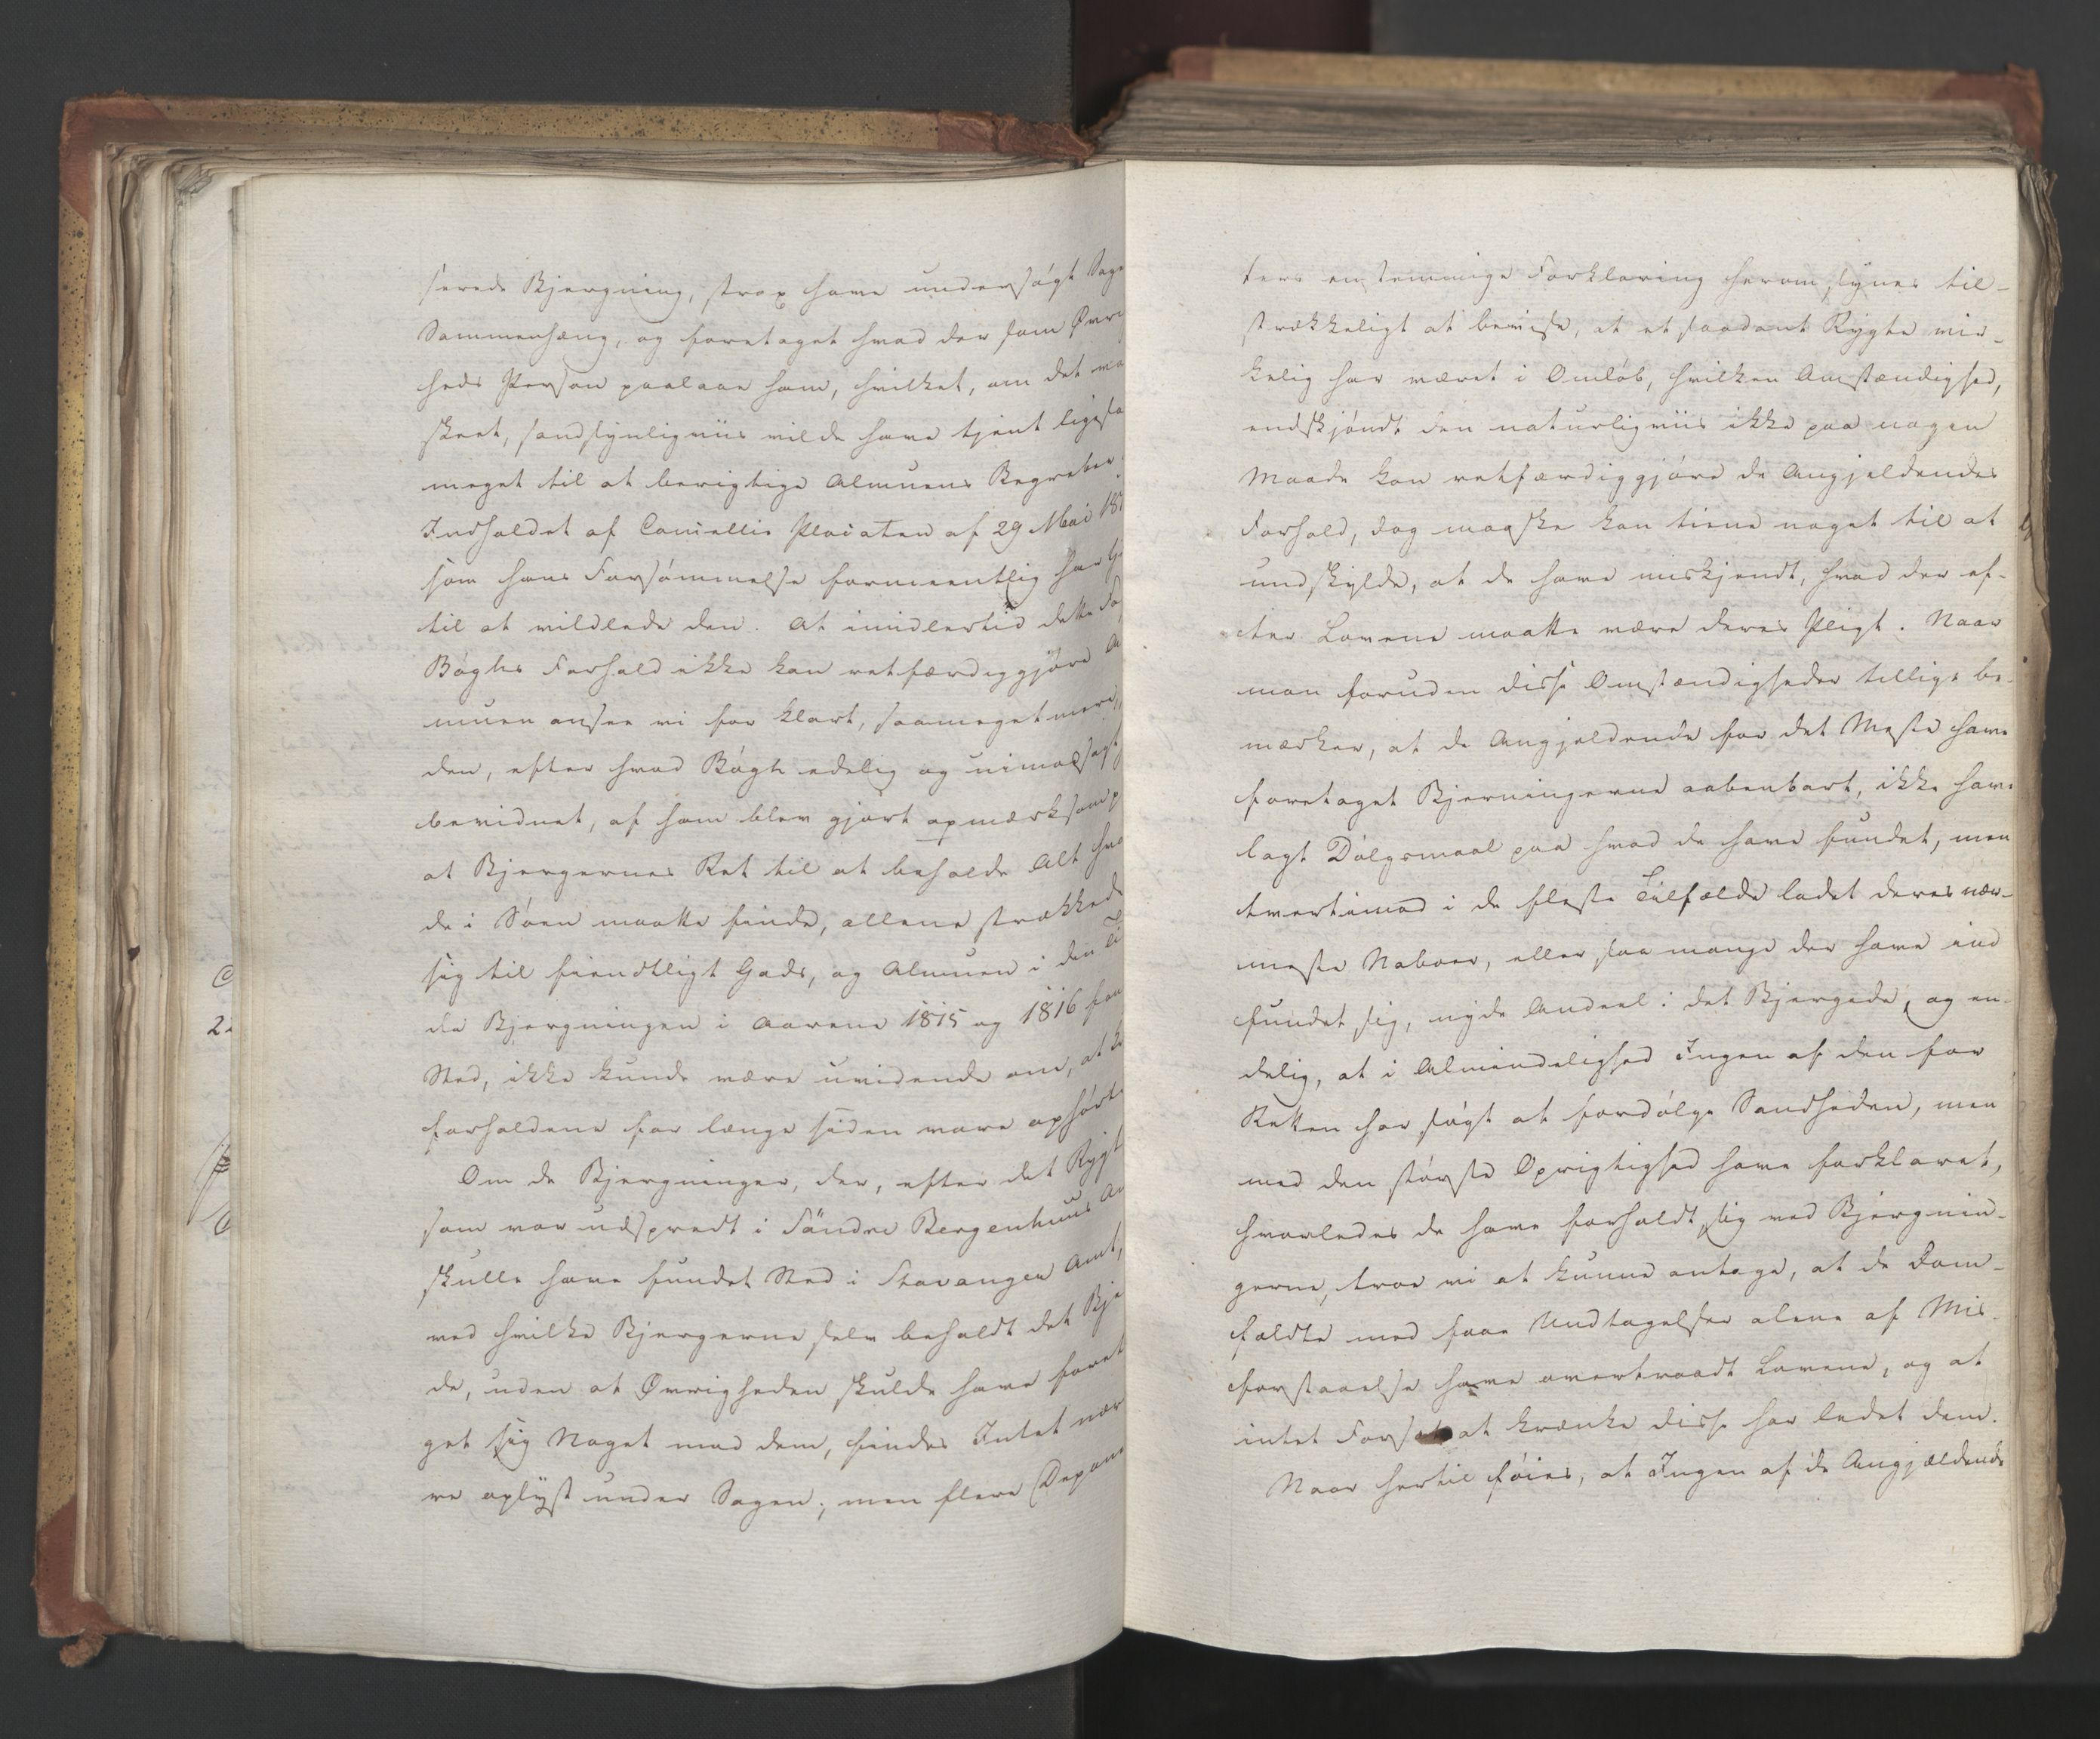 serede Bjergning, strax have undersøgt Sage
Sammenhæng, og foretaget hvad der som Øvri
heds Person paalaae ham, hvilket, om det va
skeet, sandsynligviis vilde have tjent ligesa
meget til at berigtige Almuens Begreber
Indholdet af Cancellie Placaten af 29 Mai 18
som hans Forsømmelse formeentlig har
til at vildlede den. At imidlertid dette Fo
Bøghs Forhold ikke kan retfærdiggjøre A
muen ansee vi for klart, saameget mere,
den, efter hvad Bøgh edelig og uimodsagt
bevidnet, af ham blev gjort opmærksom p
at Bjergernes Ret til at beholde Alt hva
de i Søen maatte finde, allene strækked
sig til fiendtligt Gods, og Almuen i den Ti
da Bjergningen i Aarene 1815 og 1816 fan
Sted, ikke kunde være uvidende om, at K
forholdene for længe siden vare ophørt
Om de Bjergninger, der, efter det Rygt
som var udspredt i Søndre Bergenhuus Am
skulle have fundet Sted i Stavanger Amt,
ved hvilke Bjergerne selv beholdt det Bje
de, uden at Øvrigheden skulde have foret
get sig Noget mod dem, findes Intet nær
re oplyst under Sagen; men flere Depone
ters enstemmige Forklaring herom synes til-
strækkeligt at bevise, at et saadant Rygte vir-
kelig har været i Omløb, hvilken Omstændighed,
endskjøndt den naturligviis ikke paa nogen
Maade kan retfærdiggjøre de Angjeldendes
Forhold, dog maaske kan tiene noget til at
undskylde, at de have miskjendt, hvad der ef-
ter Lovene maatte være deres Pligt. Naar
man foruden disse Omstændigheder tillige be-
mærker, at de Angjeldende for det Meste have
foretaget Bjerningerne aabenbart, ikke have
lagt Dølgsmaal paa hvad de have fundet, men
tvertimod i de fleste Tilfælde ladet deres nær-
meste Naboer, eller saa mange der have ind
fundet sig, nyde Andeel i det Bjergede, og en-
delig, at i Almindelighed Ingen af dem for
Retten har søgt at fordølge Sandheden, men
med den største Oprigtighed have forklaret,
hvorledes de have forholdt sig ved Bjergnin-
gerne, troe vi at kunne antage, at de Dom-
fældte med faae Undtagelser alene af Mis-
forstaaelse have overtraadt Lovene, og at
intet Forsæt at krænke disse har ledet dem.
Naar hertil føies, at Ingen af de Angjældende